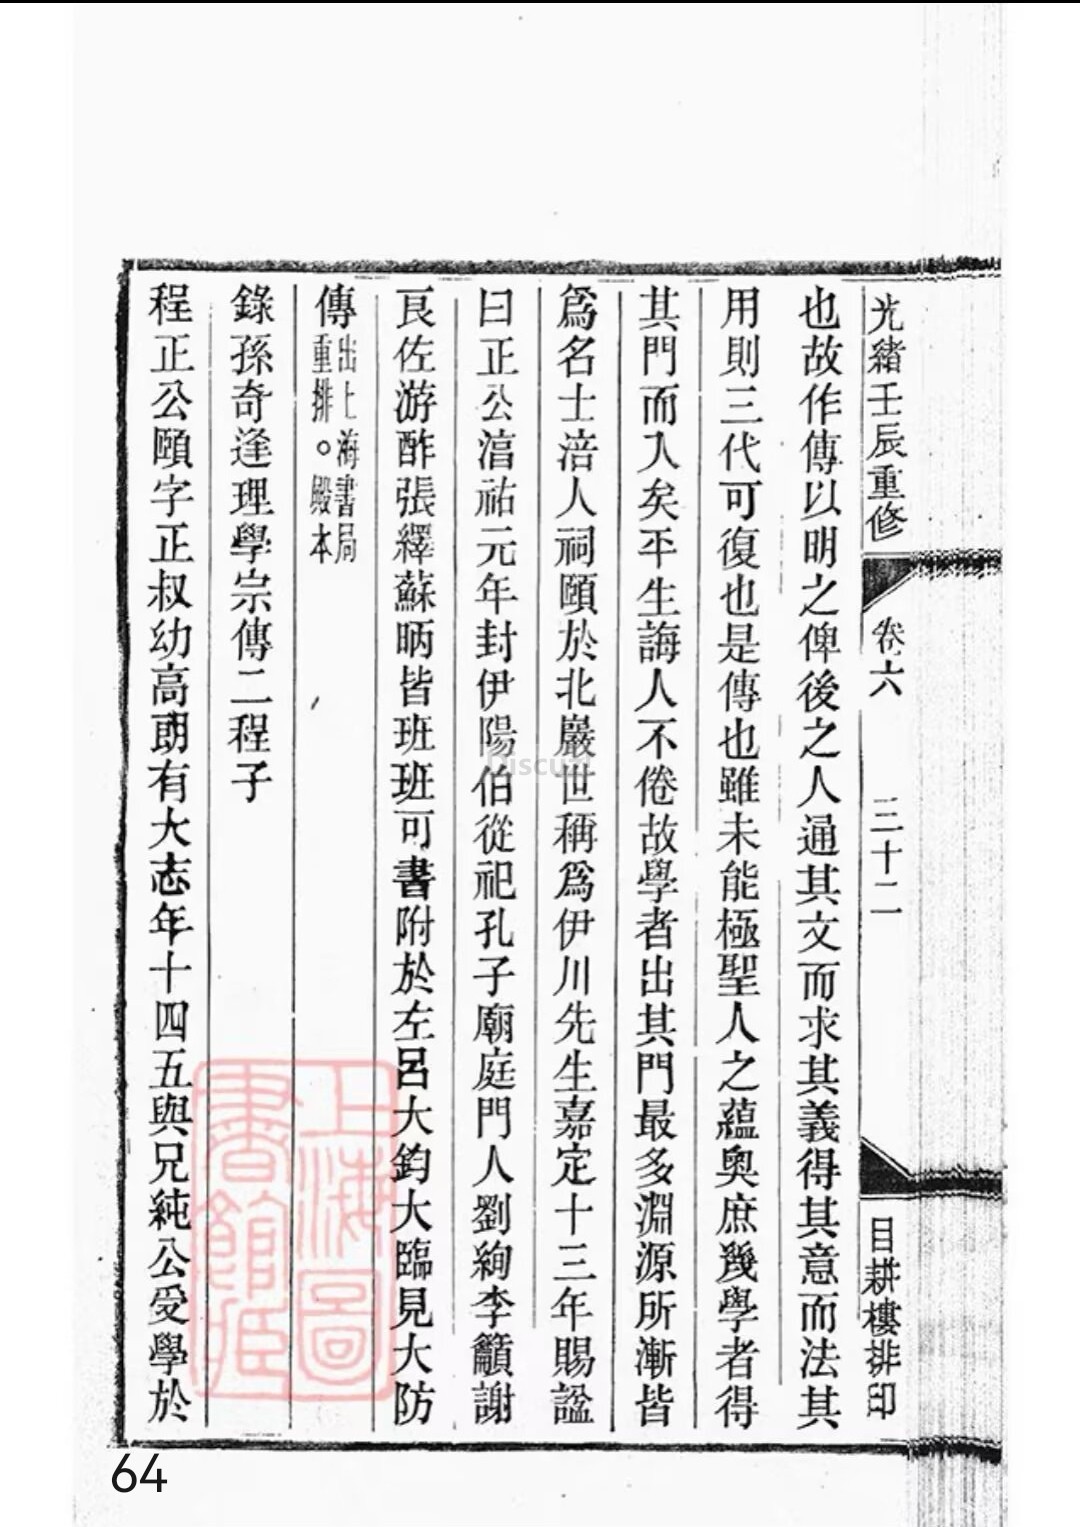 光緒壬辰重修 卷六 三十二 目耕樓排印
也故作傳以明之俾後之人通其文而求其義得其意而法其
用則三代可復也是傳也雖未能極聖人之蘊奧庶幾學者得
其門而入矣平生誨人不倦故學者出其門最多淵源所漸皆
爲名士涪人祠頤於北巖世稱爲伊川先生嘉定十三年賜諡
曰正公淳祐元年封伊陽伯從祀孔子廟庭門人劉絢李籲謝
良佐游酢張繹蘇昞皆班班可書附於左呂大鈞大臨見大防
傳出上海書局重排。殿本
錄孫奇逢理學宗傳二程子
程正公頤字正叔幼高朗有大志年十四五與兄純公受學於
上海圖書館藏
Discuz!
64